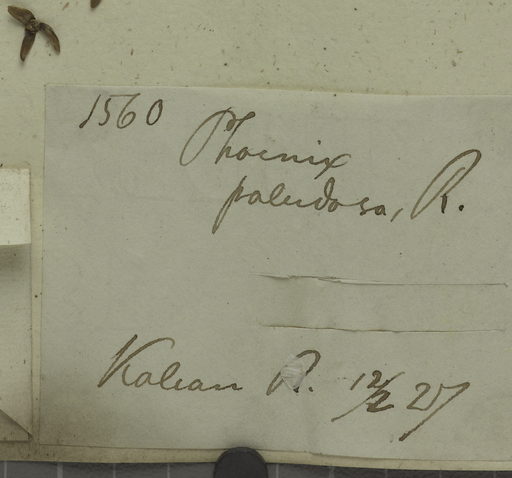 1560
Phoenix
paludosa, R.
Kaleau R. 12/2 27